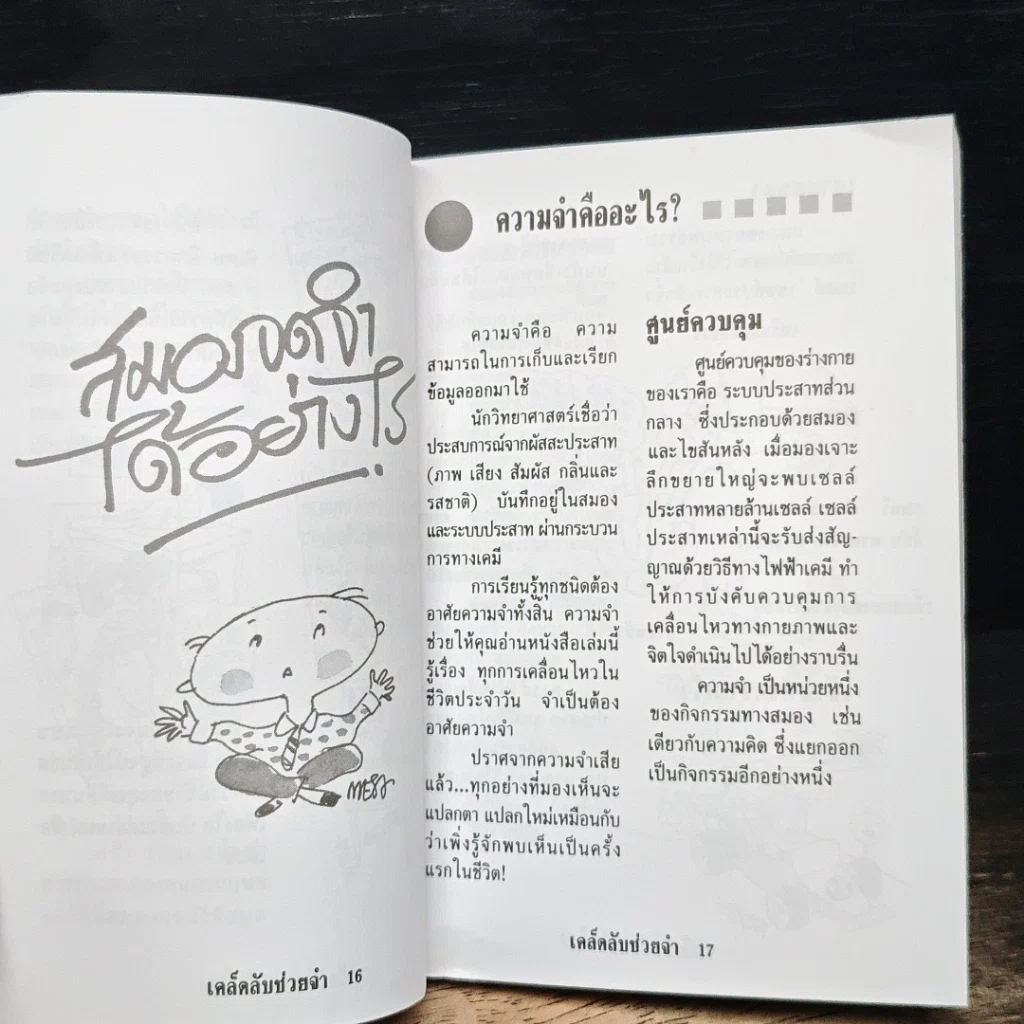 สมองจดจำ
ได้อย่างไร
เคล็ดลับช่วยจำ 16
ความจำคืออะไร?
ความจำคือ ความ
สามารถในการเก็บและเรียก
ข้อมูลออกมาใช้
นักวิทยาศาสตร์เชื่อว่า
ประสบการณ์จากผัสสะประสาท
(ภาพ เสียง สัมผัส กลิ่นและ
รสชาติ) บันทึกอยู่ในสมอง
และระบบประสาท ผ่านกระบวน
การทางเคมี
การเรียนรู้ทุกชนิดต้อง
อาศัยความจำทั้งสิ้น ความจำ
ช่วยให้คุณอ่านหนังสือเล่มนี้
รู้เรื่อง ทุกการเคลื่อนไหวใน
ชีวิตประจำวัน จำเป็นต้อง
อาศัยความจำ
ปราศจากความจำเสีย
แล้ว...ทุกอย่างที่มองเห็นจะ
แปลกตา แปลกใหม่เหมือนกับ
ว่าเพิ่งรู้จักพบเห็นเป็นครั้ง
แรกในชีวิต!
ศูนย์ควบคุม
ศูนย์ควบคุมของร่างกาย
ของเราคือ ระบบประสาทส่วน
กลาง ซึ่งประกอบด้วยสมอง
และไขสันหลัง เมื่อมองเจาะ
ลึกขยายใหญ่จะพบเซลล์
ประสาทหลายล้านเซลล์ เซลล์
ประสาทเหล่านี้จะรับส่งสัญ-
ญาณด้วยวิธีทางไฟฟ้าเคมี ทำ
ให้การบังคับควบคุมการ
เคลื่อนไหวทางกายภาพและ
จิตใจดำเนินไปได้อย่างราบรื่น
ความจำ เป็นหน่วยหนึ่ง
ของกิจกรรมทางสมอง เช่น
เดียวกับความคิด ซึ่งแยกออก
เป็นกิจกรรมอีกอย่างหนึ่ง
เคล็ดลับช่วยจำ 17